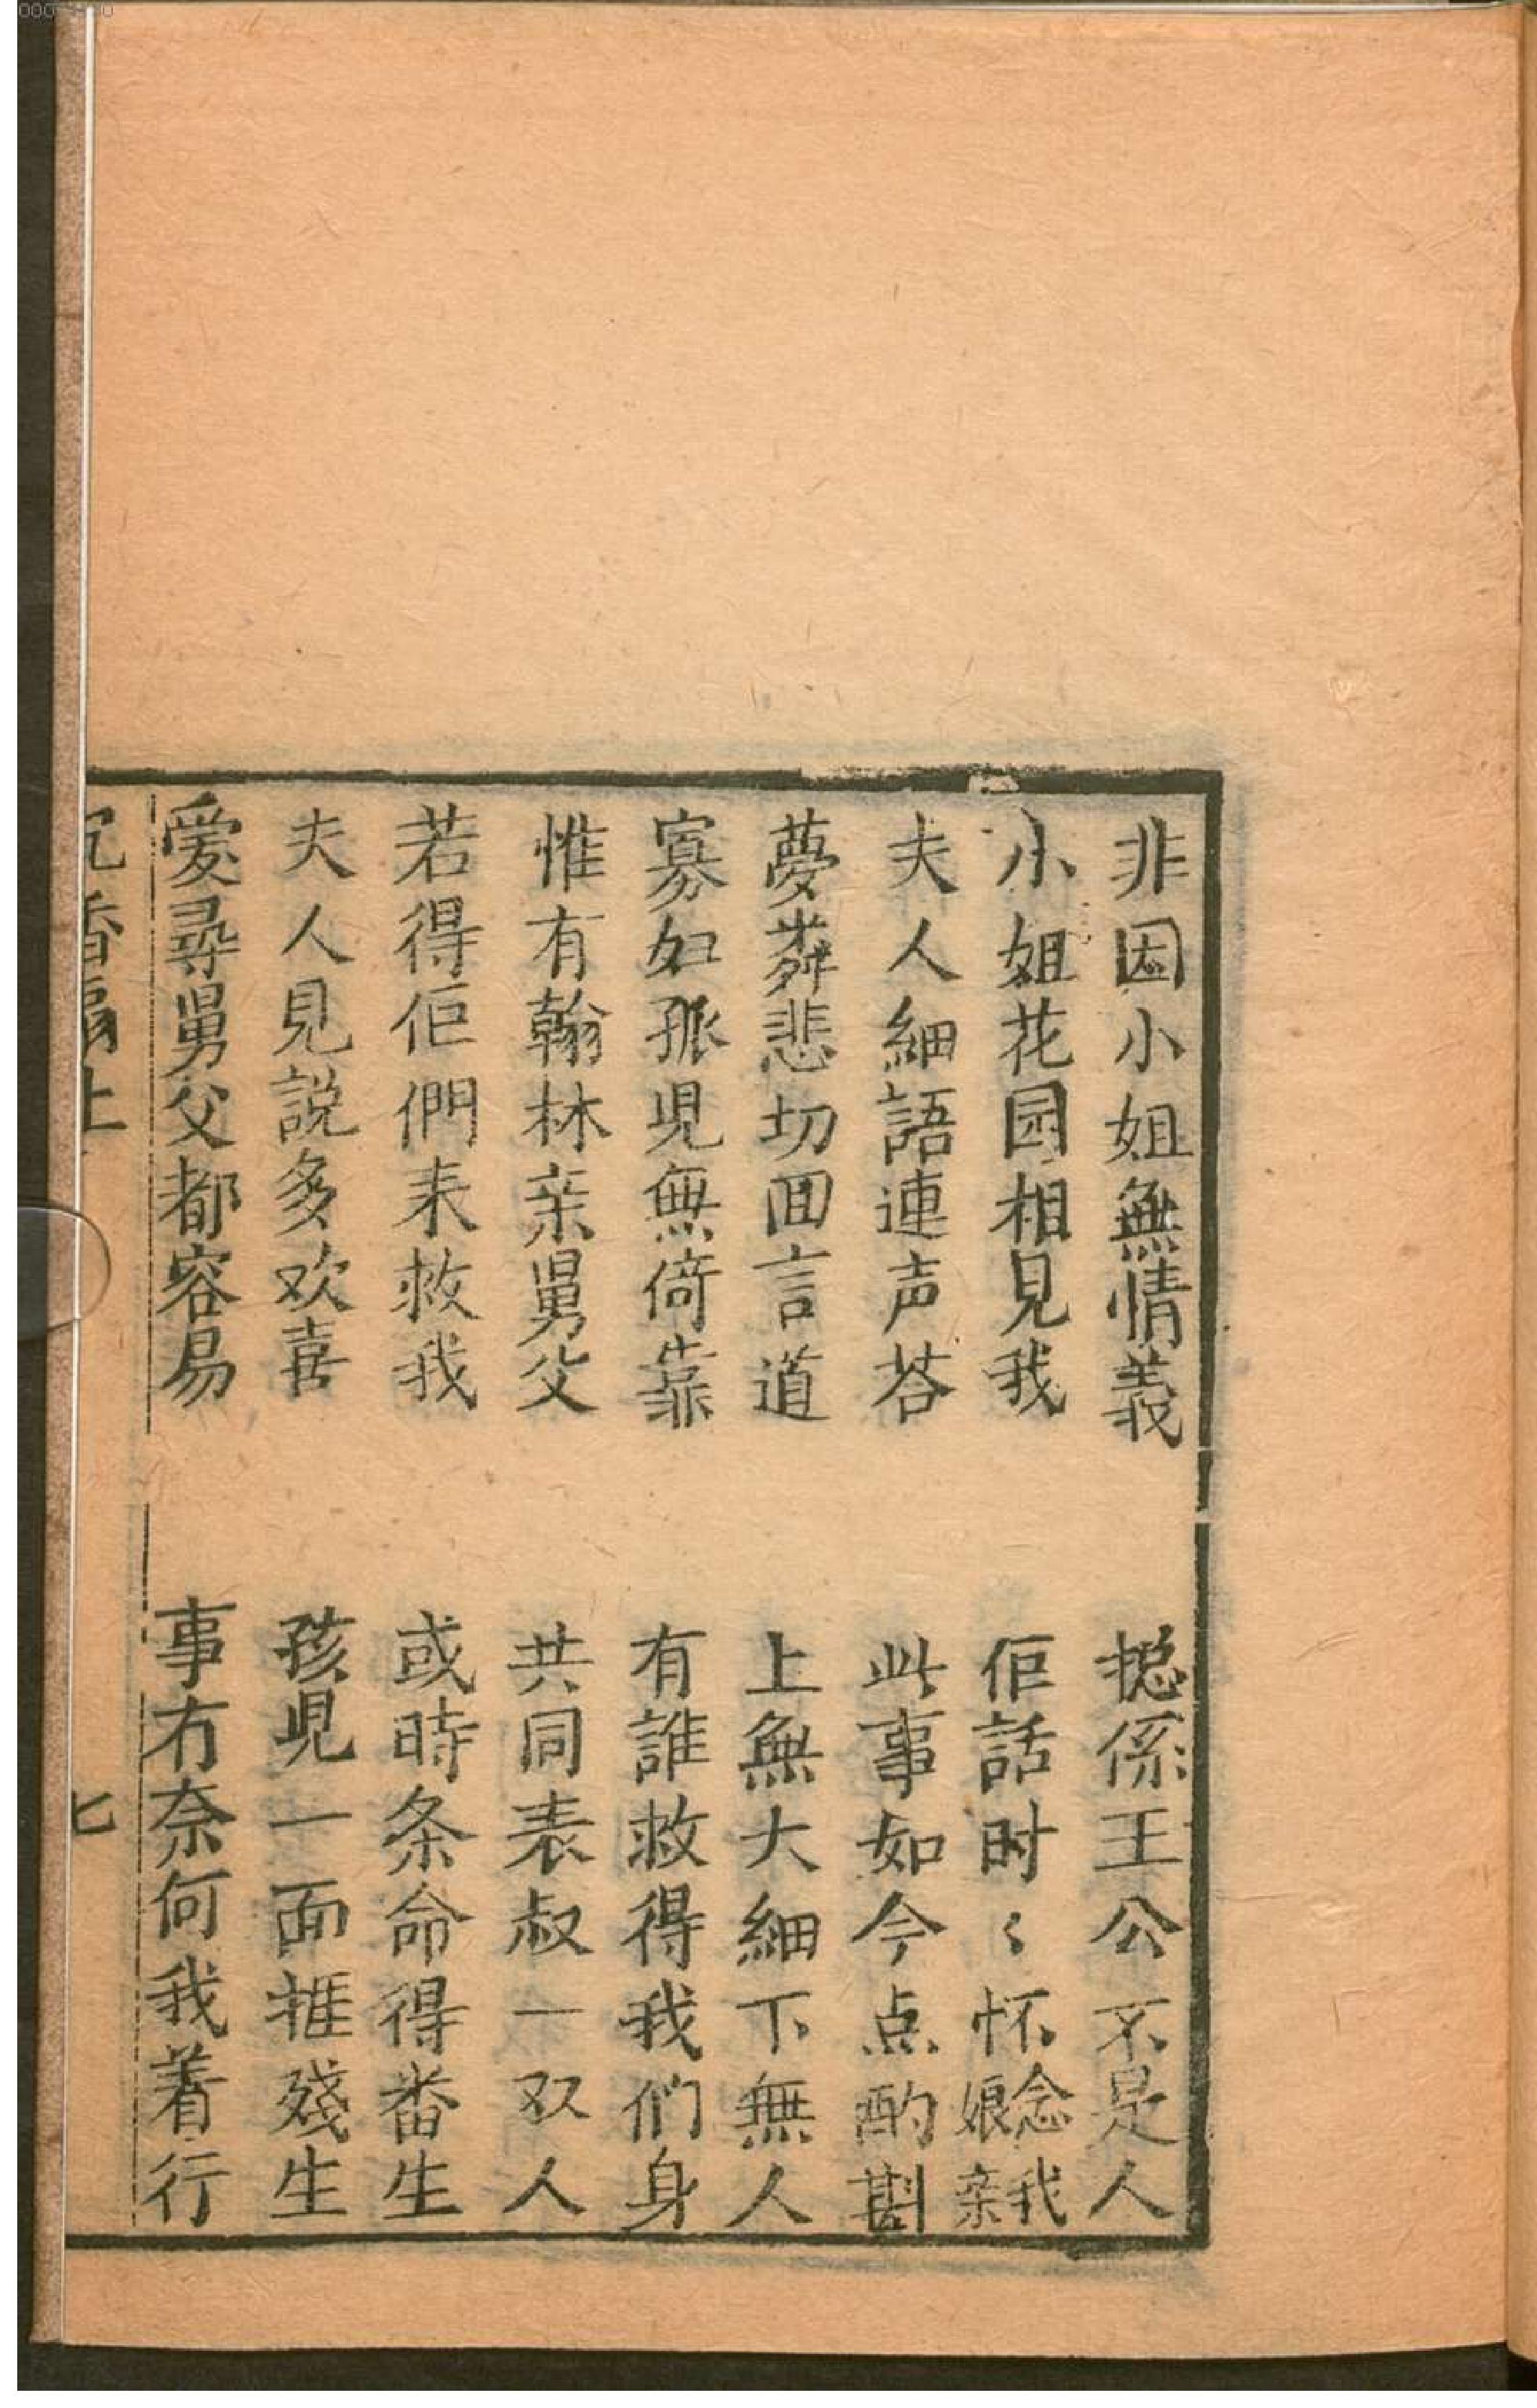 非因小姐無情義　揔係王公不是人
小姐花园相見我　佢話时〻怀念我娘亲
夫人細語連声荅　此事如今点酌斟
夢粦悲切囬言道　上無大細下無人
寡妇孤児無倚靠　有誰救得我们身
惟有翰林亲舅父　共同表叔一双人
若得佢們耒救我　或時条命得番生
夫人見説多欢喜　孩児一面摧殘生
爱尋舅父都容易　事冇奈何我着行
沉香扇上　七